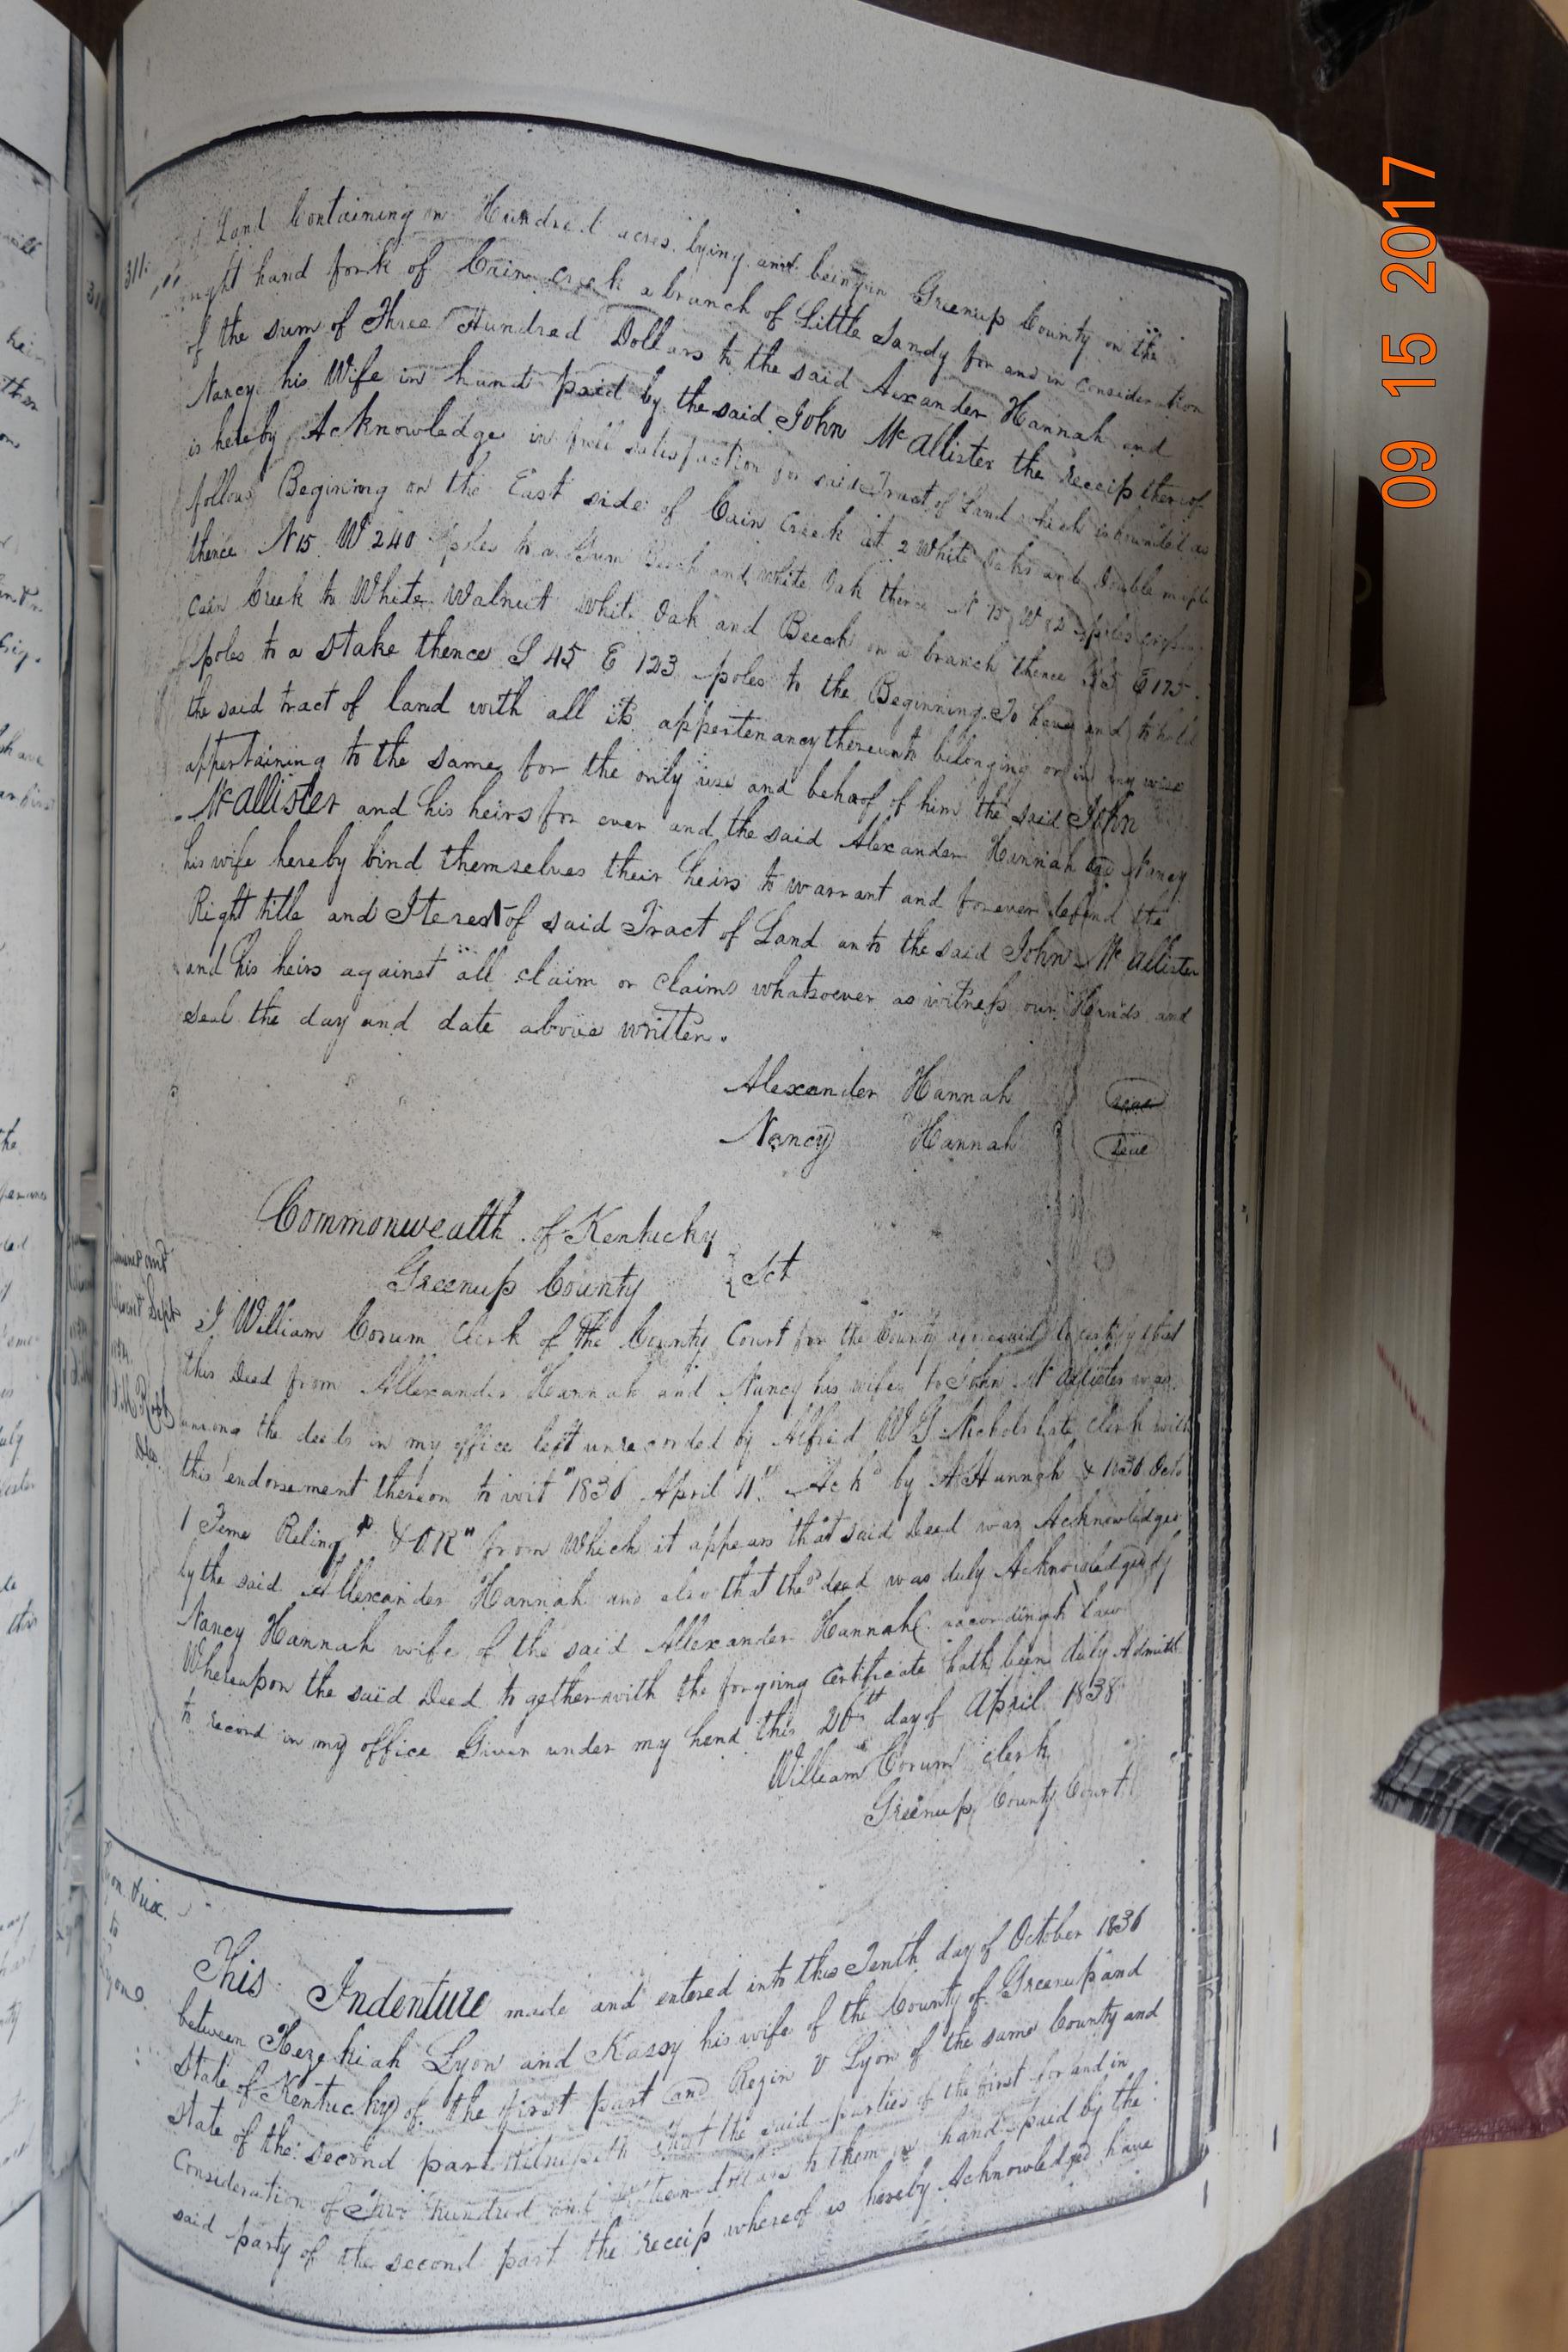 311.
Land Containing on Hundred acres lying and being in Greenup County on the
right hand fork of Cain creek a branch of Little Sandy for and in Consideration
of the sum of Three Hundred Dollars to the said Alexander Hannah and
Nancy his Wife in hand paid by the said John McAllister the receip thereof
is hereby Acknowledge in full satisfaction for said Tract of Land which is bounded as
follows Begining on the East side of Cain Creek at 2 White Oaks and Double maple
thence N 15 W 240 poles to a Gum Beech and White Oak thence N 75 W poles crossing
Cain Creek to White Walnut White Oak and Beech on a branch thence E 175
poles to a Stake thence S 45 E 123 poles to the Beginning To have and to hold
the said tract of land with all its appertenancy thereunto belonging or in any wise
appertaining to the same for the only use and behoof of him the said John
McAllister and his heirs for ever and the said Alexander Hannah and Nancy
his wife hereby bind themselves their heirs to warrant and forever defend the
Right title and Iterest of said Tract of Land unto the said John McAllister
and his heirs against all claim or claims whatsoever as witness our Hands and
Seal the day and date above written.
Alexander Hannah Seal
Nancy Hannah Seal
Commonwealth of Kentucky
Greenup County } Sct
I William Corum Clerk of the County Court for the County aforesaid do certify that
this Deed from Allexander Hannah and Nancy his wife to John McAllister was
among the deeds in my office left unrecorded by Alfred W G Nichols late Clerk with
this endorsement thereon to wit "1836 April 11th Ackd by A Hannah & 1836 Octo
1 Feme Relingd & OR" from Which it appears that said Deed was Acknowledged
by the said Allexander Hannah and also that the sd deed was duly Acknowledged by
Nancy Hannah wife of the said Allexander Hannah according to law
Whereupon the said Deed together with the forgoing Certificate hath been duly Admitt
to record in my office Given under my hand this 26th day of April 1838
William Corum clerk
Greenup County Court
This Indenture made and entered into this Tenth day of October 1836
between Hezekiah Lyon and Kassy his wife of the County of Greenup and
State of Kentucky of the first part and Regin V Lyon of the same County and
State of the second part Witnesseth that the said parties of the first for and in
Consideration of hundred and dollars to them in hand paid by the
said party of the second part the receip whereof is hereby Acknowledged have
09 15 2017